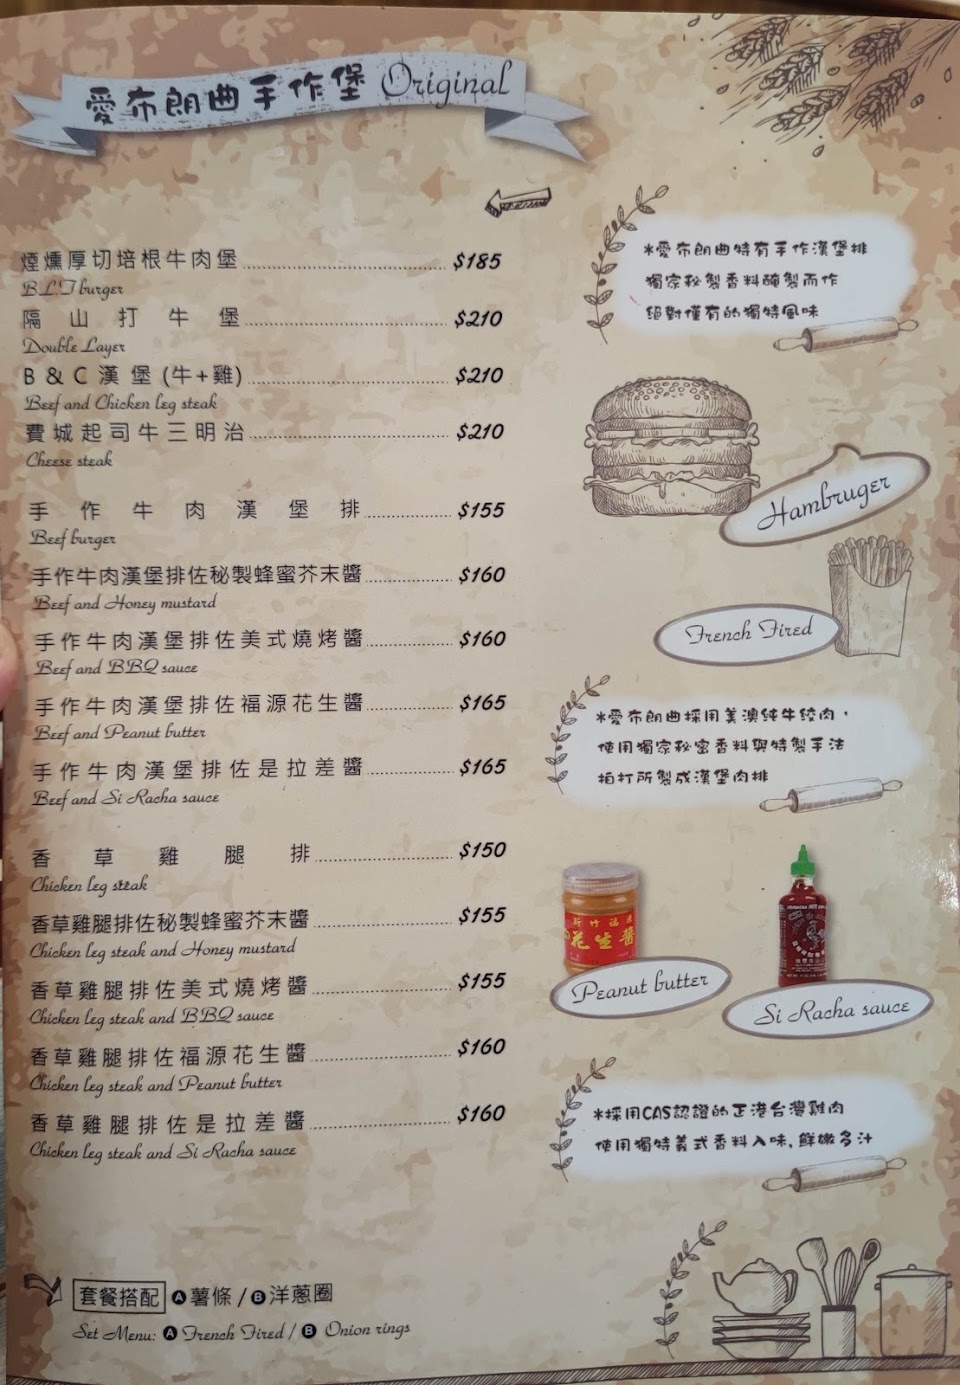 愛布朗曲手作堡 Original
煙燻厚切培根牛肉堡 $185
B.L.T burger
隔山打牛堡 $210
Double Layer
B & C 漢堡 (牛+雞) $210
Beef and Chicken leg steak
費城起司牛三明治 $210
Cheese steak
手作牛肉漢堡排 $155
Beef burger
手作牛肉漢堡排佐秘製蜂蜜芥末醬 $160
Beef and Honey mustard
手作牛肉漢堡排佐美式燒烤醬 $160
Beef and BBQ sauce
手作牛肉漢堡排佐福源花生醬 $165
Beef and Peanut butter
手作牛肉漢堡排佐是拉差醬 $165
Beef and Si Racha sauce
香草雞腿排 $150
Chicken leg steak
香草雞腿排佐秘製蜂蜜芥末醬 $155
Chicken leg steak and Honey mustard
香草雞腿排佐美式燒烤醬 $155
Chicken leg steak and BBQ sauce
香草雞腿排佐福源花生醬 $160
Chicken leg steak and Peanut butter
香草雞腿排佐是拉差醬 $160
Chicken leg steak and Si Racha sauce
套餐搭配 A薯條 / B洋蔥圈
Set Menu: A French Fired / B Onion rings
*愛布朗曲特有手作漢堡排
獨家秘製香料醃製而作
絕對僅有的獨特風味
Hambruger
French Fired
*愛布朗曲採用美澳純牛絞肉，
使用獨家秘密香料與特製手法
拍打所製成漢堡肉排
新竹福源
花生醬
Peanut butter
Si Racha sauce
*採用CAS認證的正港台灣雞肉
使用獨特義式香料入味,鮮嫩多汁